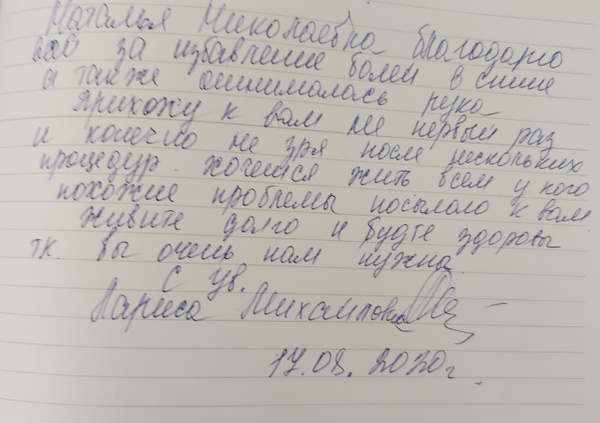 Наталья Николаевна благодарю
вас за избавление болей в спине
а также онималась рука
Прихожу к вам не первый раз
и конечно не зря после нескольких
процедур хочется жить всем у кого
похожие проблемы посылаю к вам
живите долго и будте здоровы
тк. вы очень нам нужна
С ув.
Лариса Михайловна
17.08.2020г.